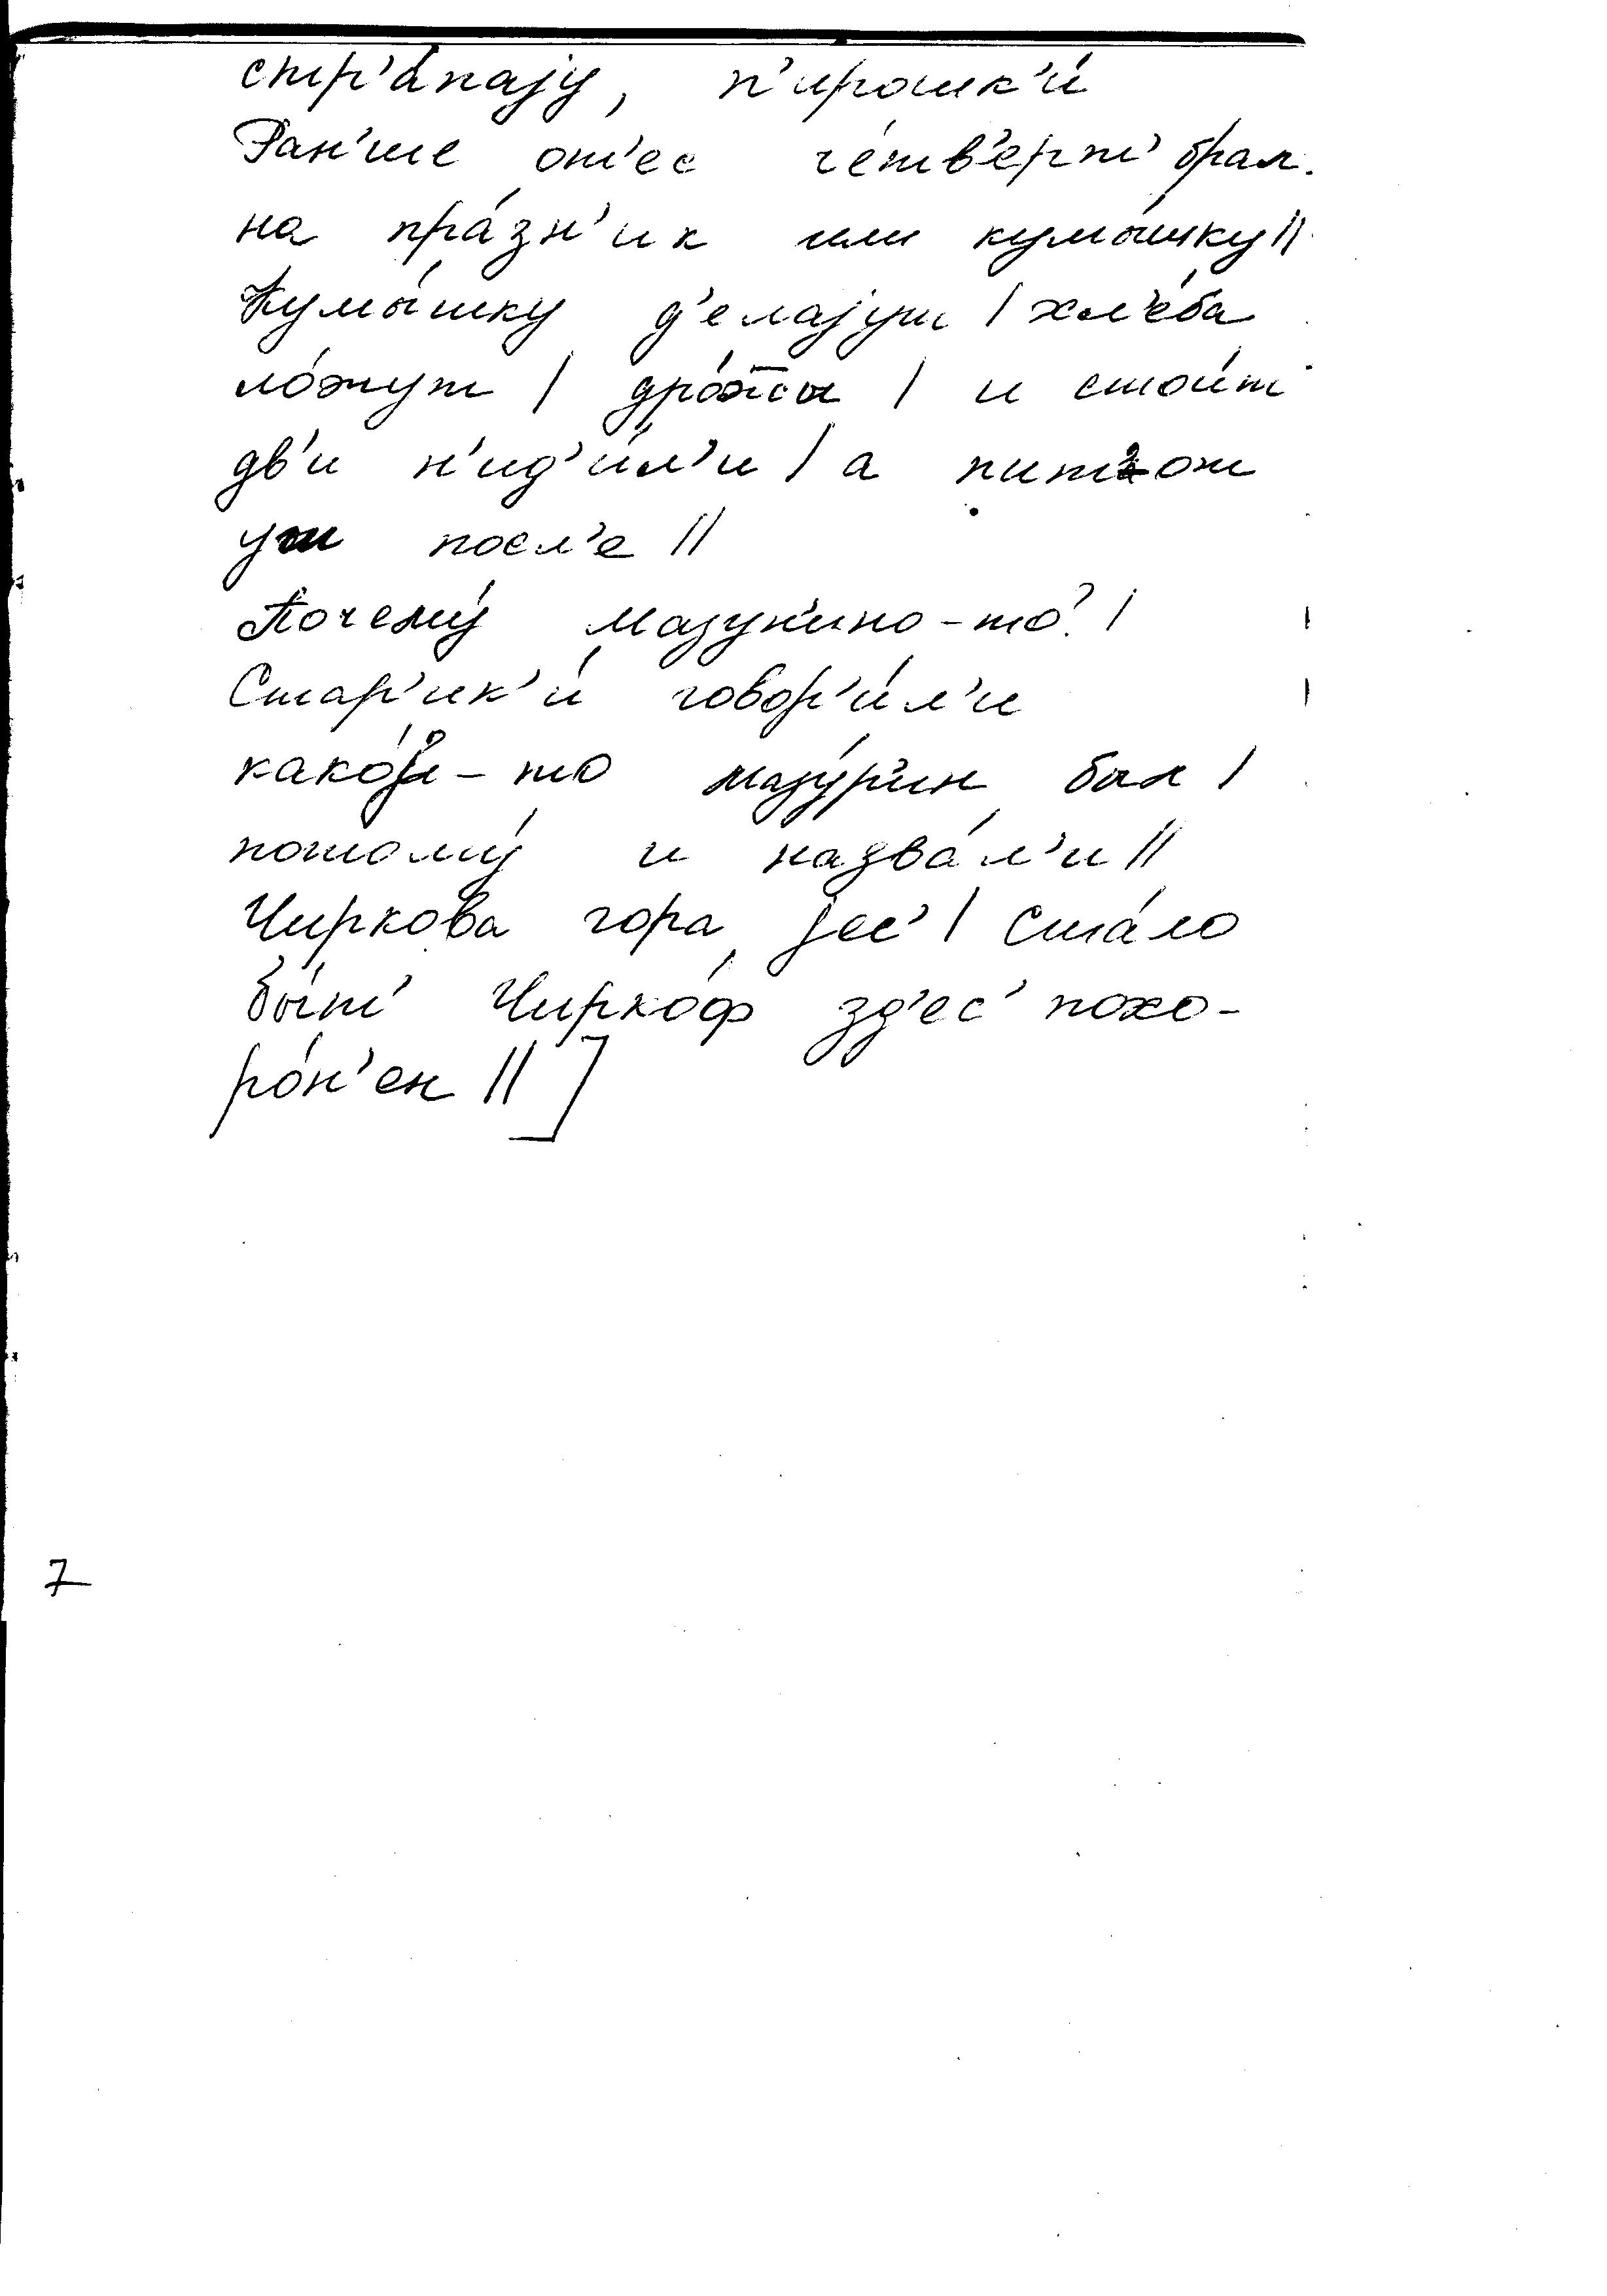 стр'а́паjу, п'ирошк'и́
Ран'ше от'ес че́тв'ерт' брал.
на пра́зн'ик или кумы́шку ||
Кумы́шку д'елаjут | хл'е́ба
ло́жут | дро́жжы | и стои́т
дв'и н'ид'и́л'и | а пит
уш посл'е ||
Почему́ Мазун'ино-то? |
Стар'ик'и́ говор'и́л'и
како́й-то мазу́р'ин был |
потому́ и назва́л'и ||
Чиркова гора jес' | Ста́ло
бы́т' Чирко́ф зд'ес' похо-
ро́н'ен || ]
7